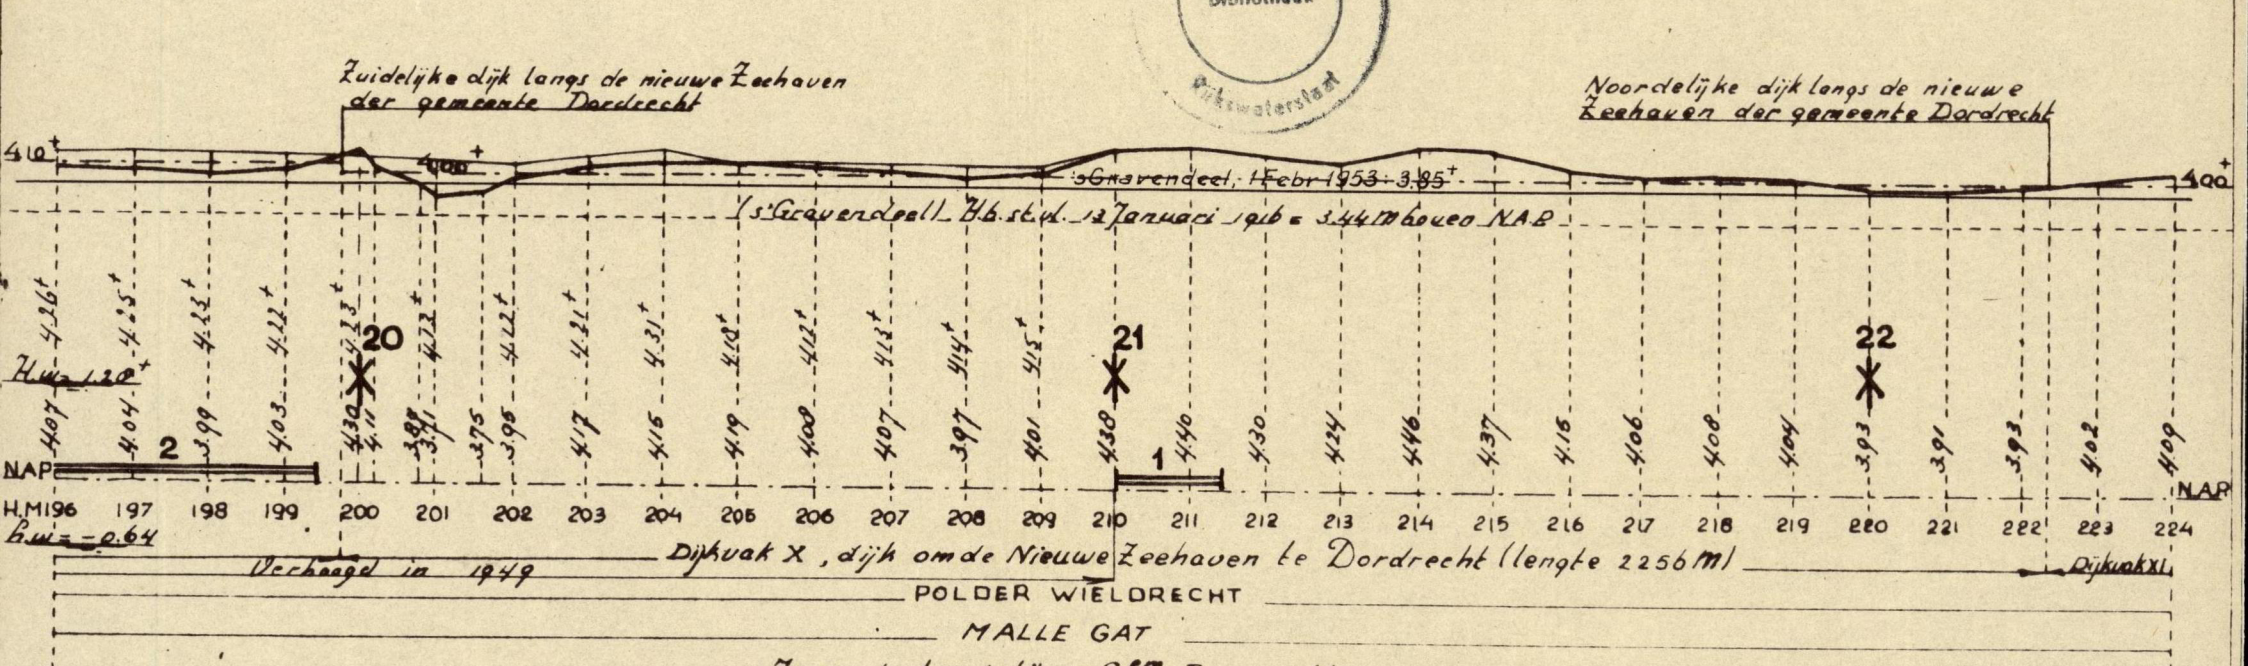 Bibliotheek
Rijkswaterstaat
Zuidelijke dijk langs de nieuwe Zeehaven
der gemeente Dordrecht
Noordelijke dijk langs de nieuwe
Zeehaven der gemeente Dordrecht
410+ 400+ 400+
'sGravendeel, 1 Febr 1953: 3.85+
(s'Gravendeel) H.b.st.w. 13 Januari 1916 = 3.44 m boven N.A.P.
4.26+ 4.25+ 4.23+ 4.22+ 4.23+ 4.23+ 4.22+ 4.21+ 4.31+ 4.18+ 4.12+ 4.13+ 4.14+ 4.15+
20 21 22
H.w= 1.20+
4.07 4.04 3.99 4.03 4.30 4.11 3.71 3.75 3.95 4.17 4.15 4.19 4.08 4.07 3.97 4.01 4.38 4.40 4.30 4.24 4.46 4.37 4.15 4.06 4.08 4.04 3.93 3.91 3.93 4.02 4.09
2 1
NAP N.A.P
H.M 196 197 198 199 200 201 202 203 204 205 206 207 208 209 210 211 212 213 214 215 216 217 218 219 220 221 222 223 224
h.w= -0.64
Dijkvak X, dijk om de Nieuwe Zeehaven te Dordrecht (lengte 2256 M)
Verhoogd in 1949
Dijkvak XI
POLDER WIELDRECHT
MALLE GAT